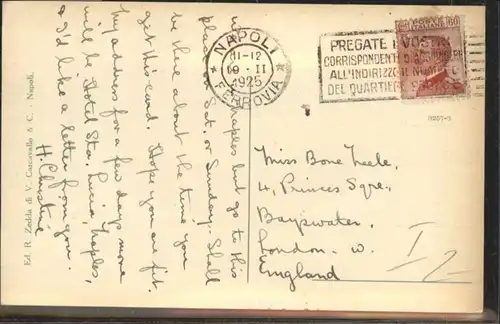 NAPOLI
11-12
19 · II
1925
FERROVIA
PREGATE I VOSTRI
CORRISPONDENTI D'AGGIUNGERE
ALL'INDIRIZZO IL NUMERO
DEL QUARTIERE
60
ITALIANE
Naples but go to this
place on Sat. or Sunday. Shall
be there about the time you
get this card. Hope you are fit.
My address for a few days more
will be Hotel Sta. Lucia, Naples,
& I'd like a letter from you.
H. Christine
Ed. R. Zedda di V. Carcavallo & C. - Napoli.
Miss Bone Neele,
4, Princes Sqre,
Bayswater,
London. W.
England